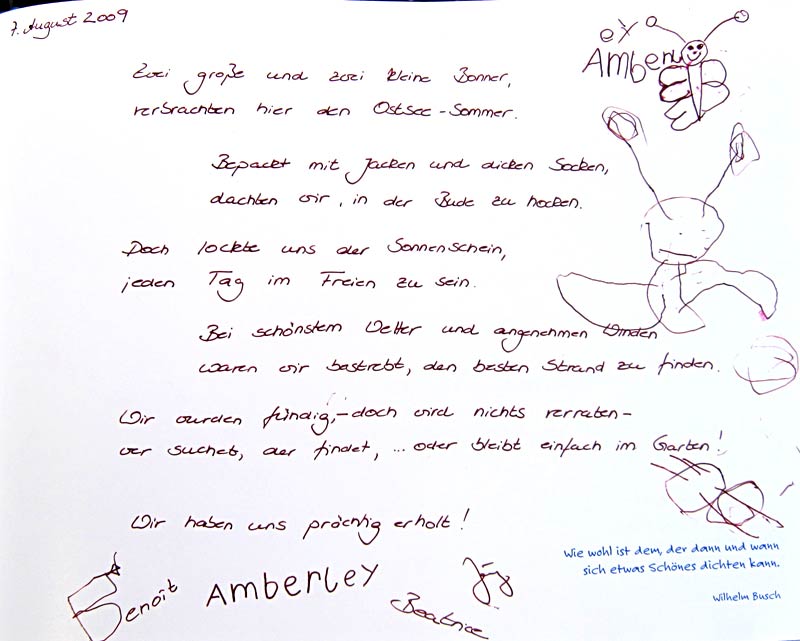 7. August 2009
ey
Amberl
Zwei große und zwei kleine Bonner,
verbrachten hier den Ostsee-Sommer.
Bepackt mit Jacken und dicken Socken,
dachten wir, in der Bude zu hocken.
Doch lockte uns der Sonnenschein,
jeden Tag im Freien zu sein.
Bei schönstem Wetter und angenehmen Winden
waren wir bestrebt, den besten Strand zu finden.
Wir wurden fündig,-doch wird nichts verraten-
wer suchet, der findet, ... oder bleibt einfach im Garten!
Wir haben uns prächtig erholt!
Benoît AMBERLEY Beatrice Jörg
Wie wohl ist dem, der dann und wann
sich etwas Schönes dichten kann.
Wilhelm Busch